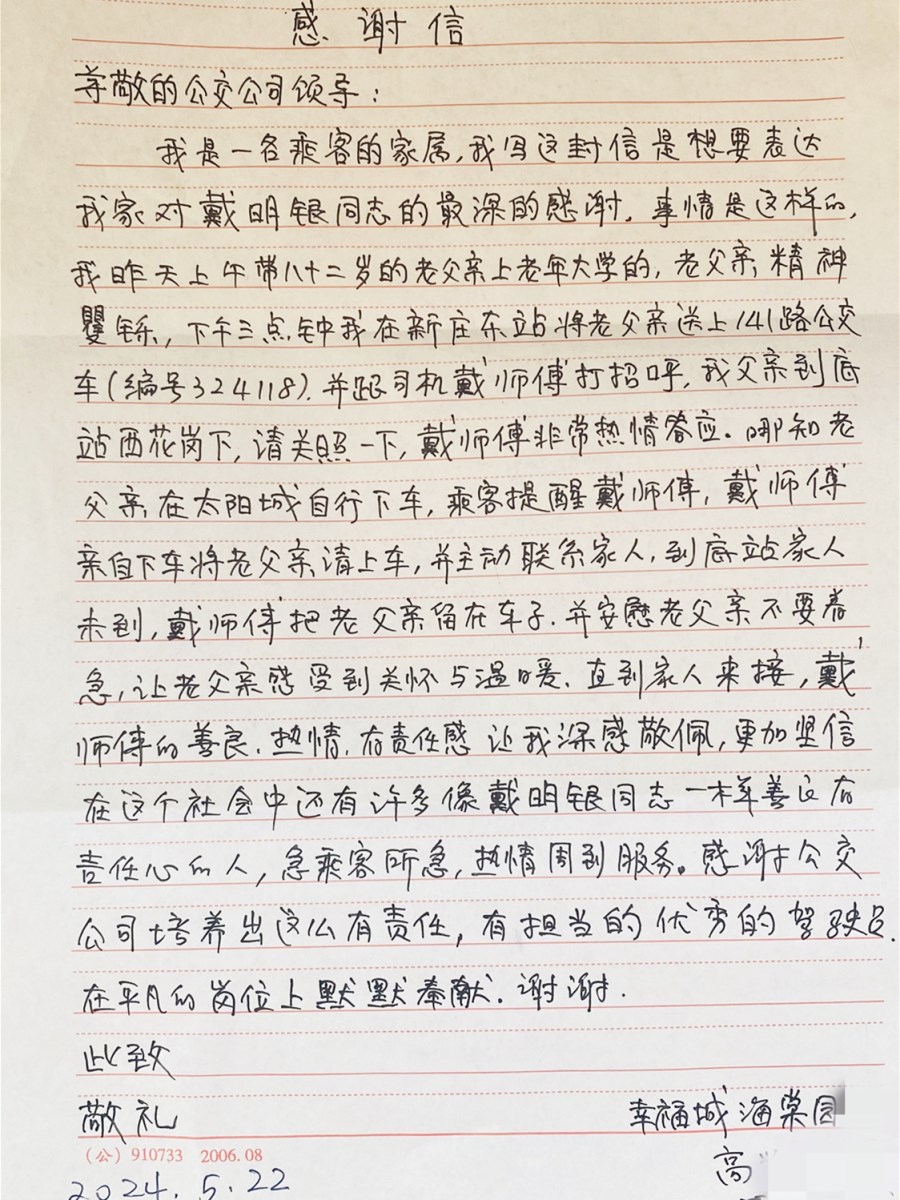 感谢信
尊敬的公交公司领导：
我是一名乘客的家属，我写这封信是想要表达
我家对戴明银同志的最深的感谢。事情是这样的，
我昨天上午带八十二岁的老父亲上老年大学的，老父亲精神
矍铄，下午三点钟我在新庄东站将老父亲送上141路公交
车(编号324118)．并跟司机戴师傅打招呼，我父亲到底
站西花岗下，请关照一下，戴师傅非常热情答应。哪知老
父亲在太阳城自行下车，乘客提醒戴师傅，戴师傅
亲自下车将老父亲请上车，并主动联系家人，到底站家人
未到，戴师傅把老父亲留在车子．并安慰老父亲不要着
急，让老父亲感受到关怀与温暖．直到家人来接，戴
师傅的善良．热情．有责任感让我深感敬佩，更加坚信
在这个社会中还有许多像戴明银同志一样善良有
责任心的人，急乘客所急，热情周到服务。感谢公交
公司培养出这么有责任，有担当的优秀的驾驶员．
在平凡的岗位上默默奉献．谢谢．
此致
敬礼
幸福城海棠园
高
（公）910733 2006.08
2024.5.22